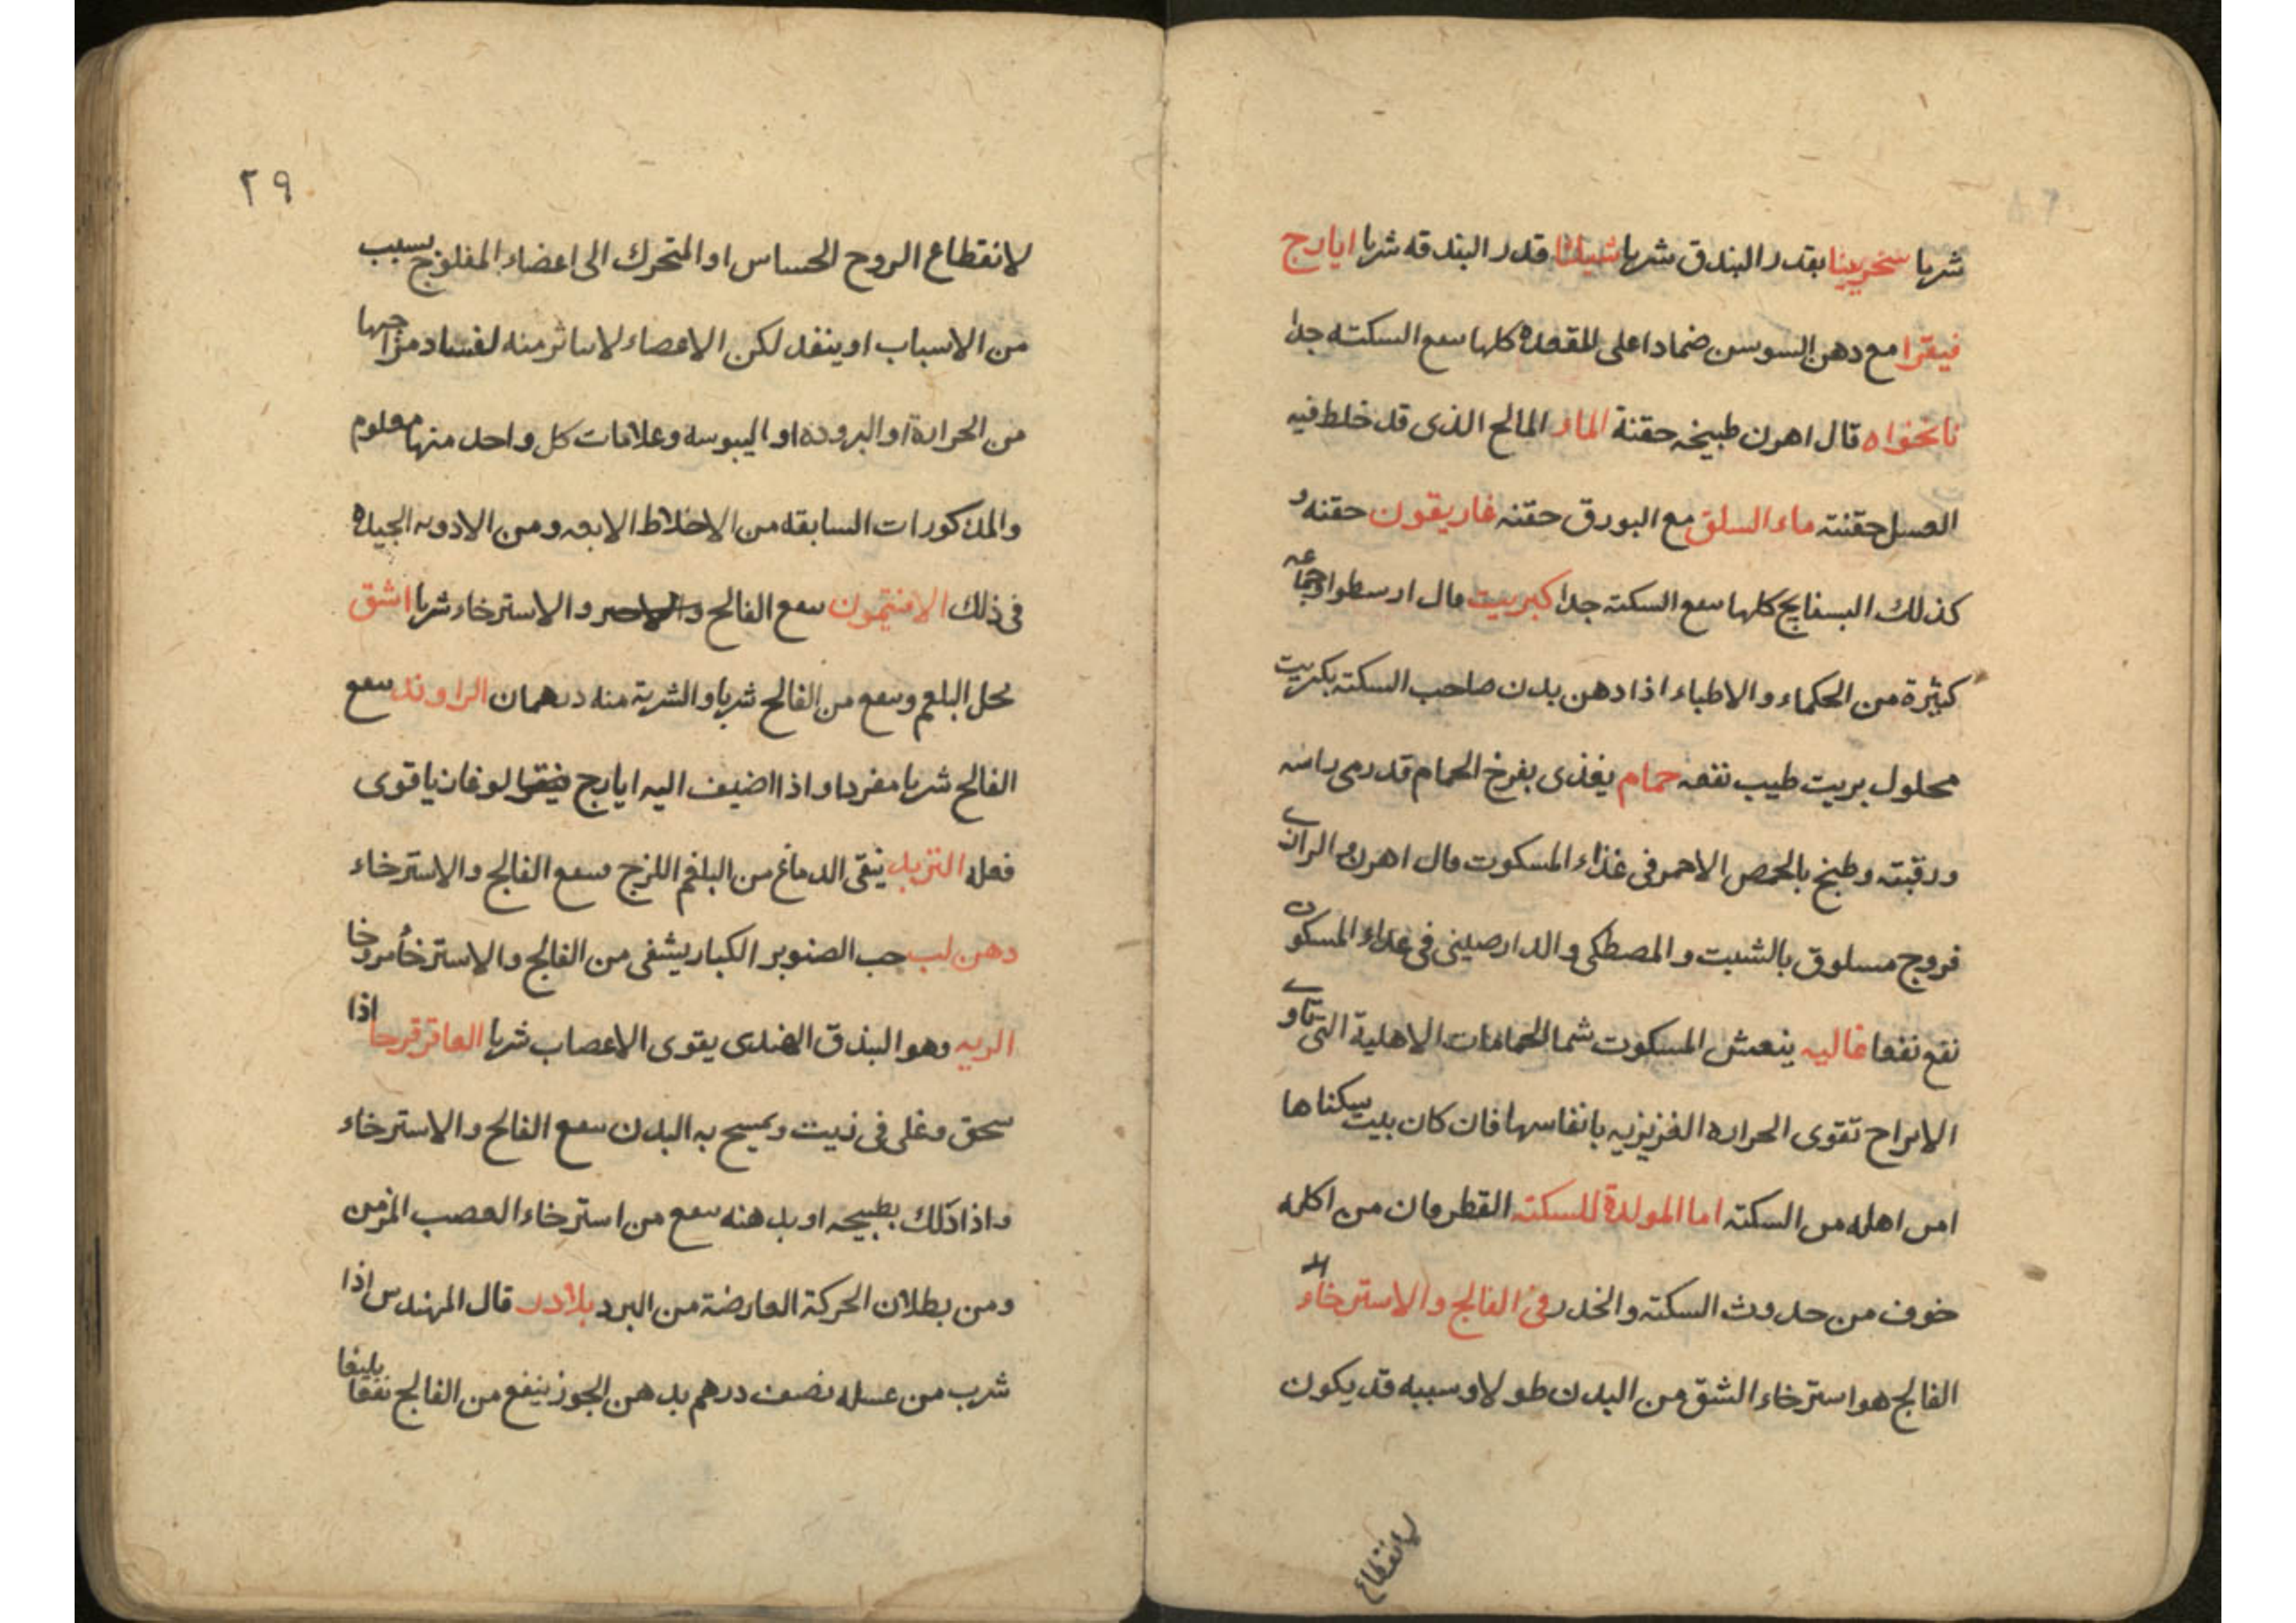 شربا سخرينا بقدر البندق شربا شيلثا قدر البندقه شربا ايارج
فيقرا مع دهن السوسن ضمادا على المقعدة كلها ينفع السكته جدا
نانخواه قال اهرن طبيخه حقنة الماء المالح الذى قد خلط فيه
العسل حقنته ماء السلق مع البورق حقنه غاريقون حقنه و
كذلك البسفايج كلها ينفع السكته جدا كبريت قال ارسطو وجماعه
كثيرة من الحكماء والاطباء اذا دهن بدن صاحب السكته بكبريت
محلول بزيت طيب نفعه حمام يغذى بفرخ الحمام قد رمى راسه
ورقبته وطبخ بالحمص الاحمر فى غذاء المسكوت قال اهرن والرازى
فروج مسلوق بالشبت والمصطكى والدارصينى فى غذاء المسكوت
نفع نفعا غاليه ينعش المسكوت شما الحمامات الاهلية التى تاوى
الابراج تقوى الحراره الغريزيه بانفاسها فان كان بيت سكناها
امن اهله من السكته اما المولدة للسكته القطرمان من اكله
خوف من حدوث السكته والخدر فى الفالج والاسترخاء
الفالج هو استرخاء الشق من البدن طولا وسببه قد يكون
لانقطاع
٢٩
لانقطاع الروح الحساس او المتحرك الى اعضاء المفلوج بسبب
من الاسباب او ينفد لكن الاعضاء لا يتاثر منه لفساد مزاجها
من الحرارة او البروده او اليبوسه وعلامات كل واحد منها معلوم
والمذكورات السابقه من الاخلاط الاربعه ومن الادويه الجيده
فى ذلك الافتيمون ينفع الفالج والاسترخاء شربا اشق
يحل البلغم وينفع من الفالج شربا والشربة منه درهمان الراوند ينفع
الفالج شربا مفردا واذا اضيف اليه ايارج فيقرا لوغاذيا قوى
فعله التربد ينقى الدماغ من البلغم اللزج وينفع الفالج والاسترخاء
دهن لب حب الصنوبر الكبار يشفى من الفالج والاسترخاء مروخا
الريه وهو البندق الهندى يقوى الاعصاب شربا العاقر قرحا اذا
سحق وغلى فى زيت ويمسح به البدن ينفع الفالج والاسترخاء
واذا دلك بطبيخه او بدهنه ينفع من استرخاء العصب المزمن
ومن بطلان الحركة العارضة من البرد بلادر قال المهندس اذا
شرب من عسله نصف درهم بدهن الجوز ينفع من الفالج نفعا بليغا